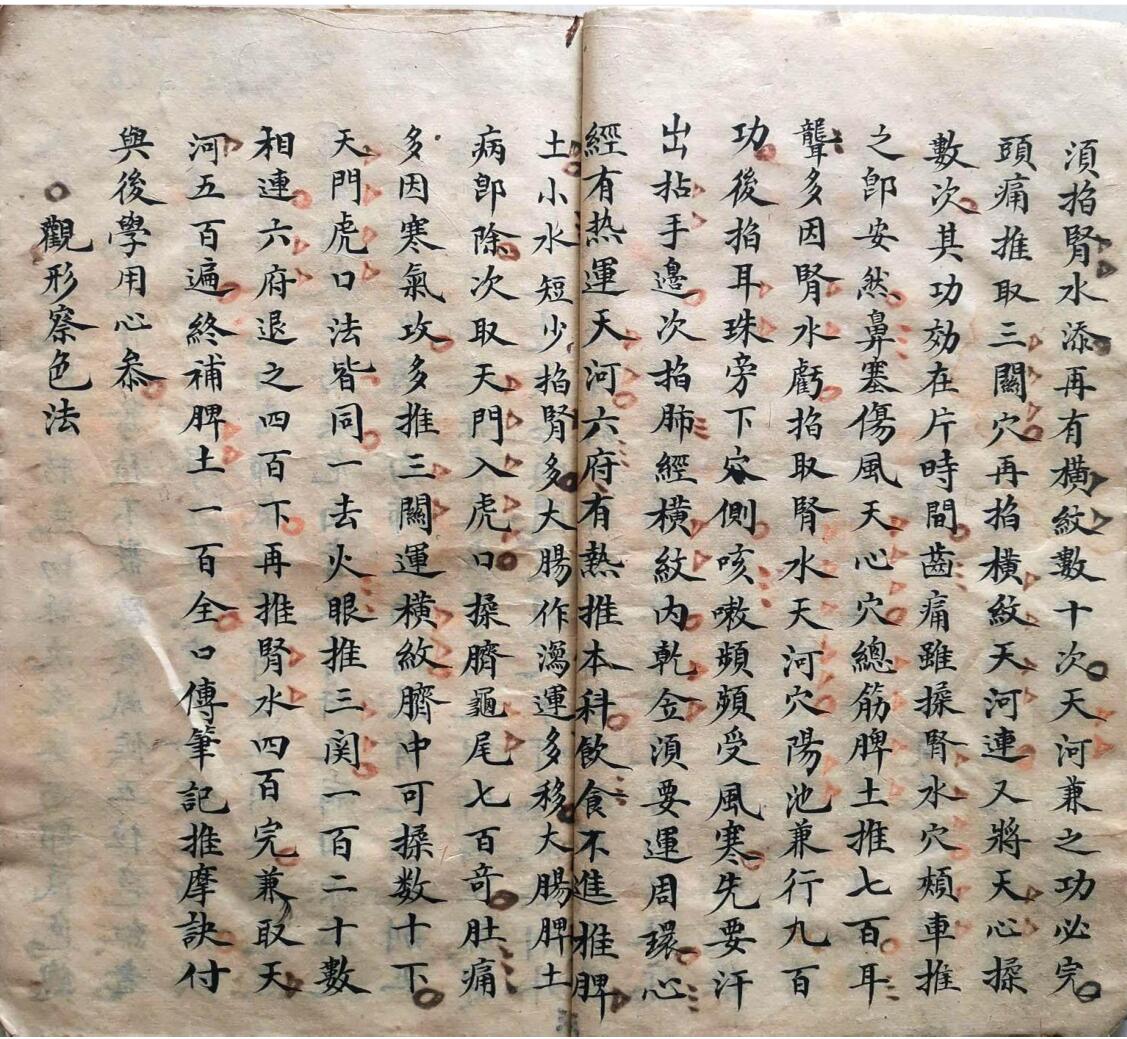 須掐腎水添再有橫紋數十次天河兼之功必完
頭痛推取三關穴再掐橫紋天河連又將天心揉
數次其功効在片時間齒痛雖揉腎水穴頰車推
之卽安然鼻塞傷風天心穴總筋脾土推七百耳
聾多因腎水虧掐取腎水天河穴陽池兼行九百
功後掐耳珠旁下穴側咳嗽頻頻受風寒先要汗
出拈手邊次掐肺經橫紋內乾金須要運周環心
經有热運天河六府有熱推本科飲食不進推脾
土小水短少掐腎多大腸作瀉運多移大腸脾土
病卽除次取天門入虎口揉臍龜尾七百奇肚痛
多因寒氣攻多推三關運橫紋臍中可揉数十下
天門虎口法皆同一去火眼推三関一百二十數
相連六府退之四百下再推腎水四百完兼取天
河五百遍終補脾土一百全口傳筆記推摩訣付
與後學用心叅
觀形察色法